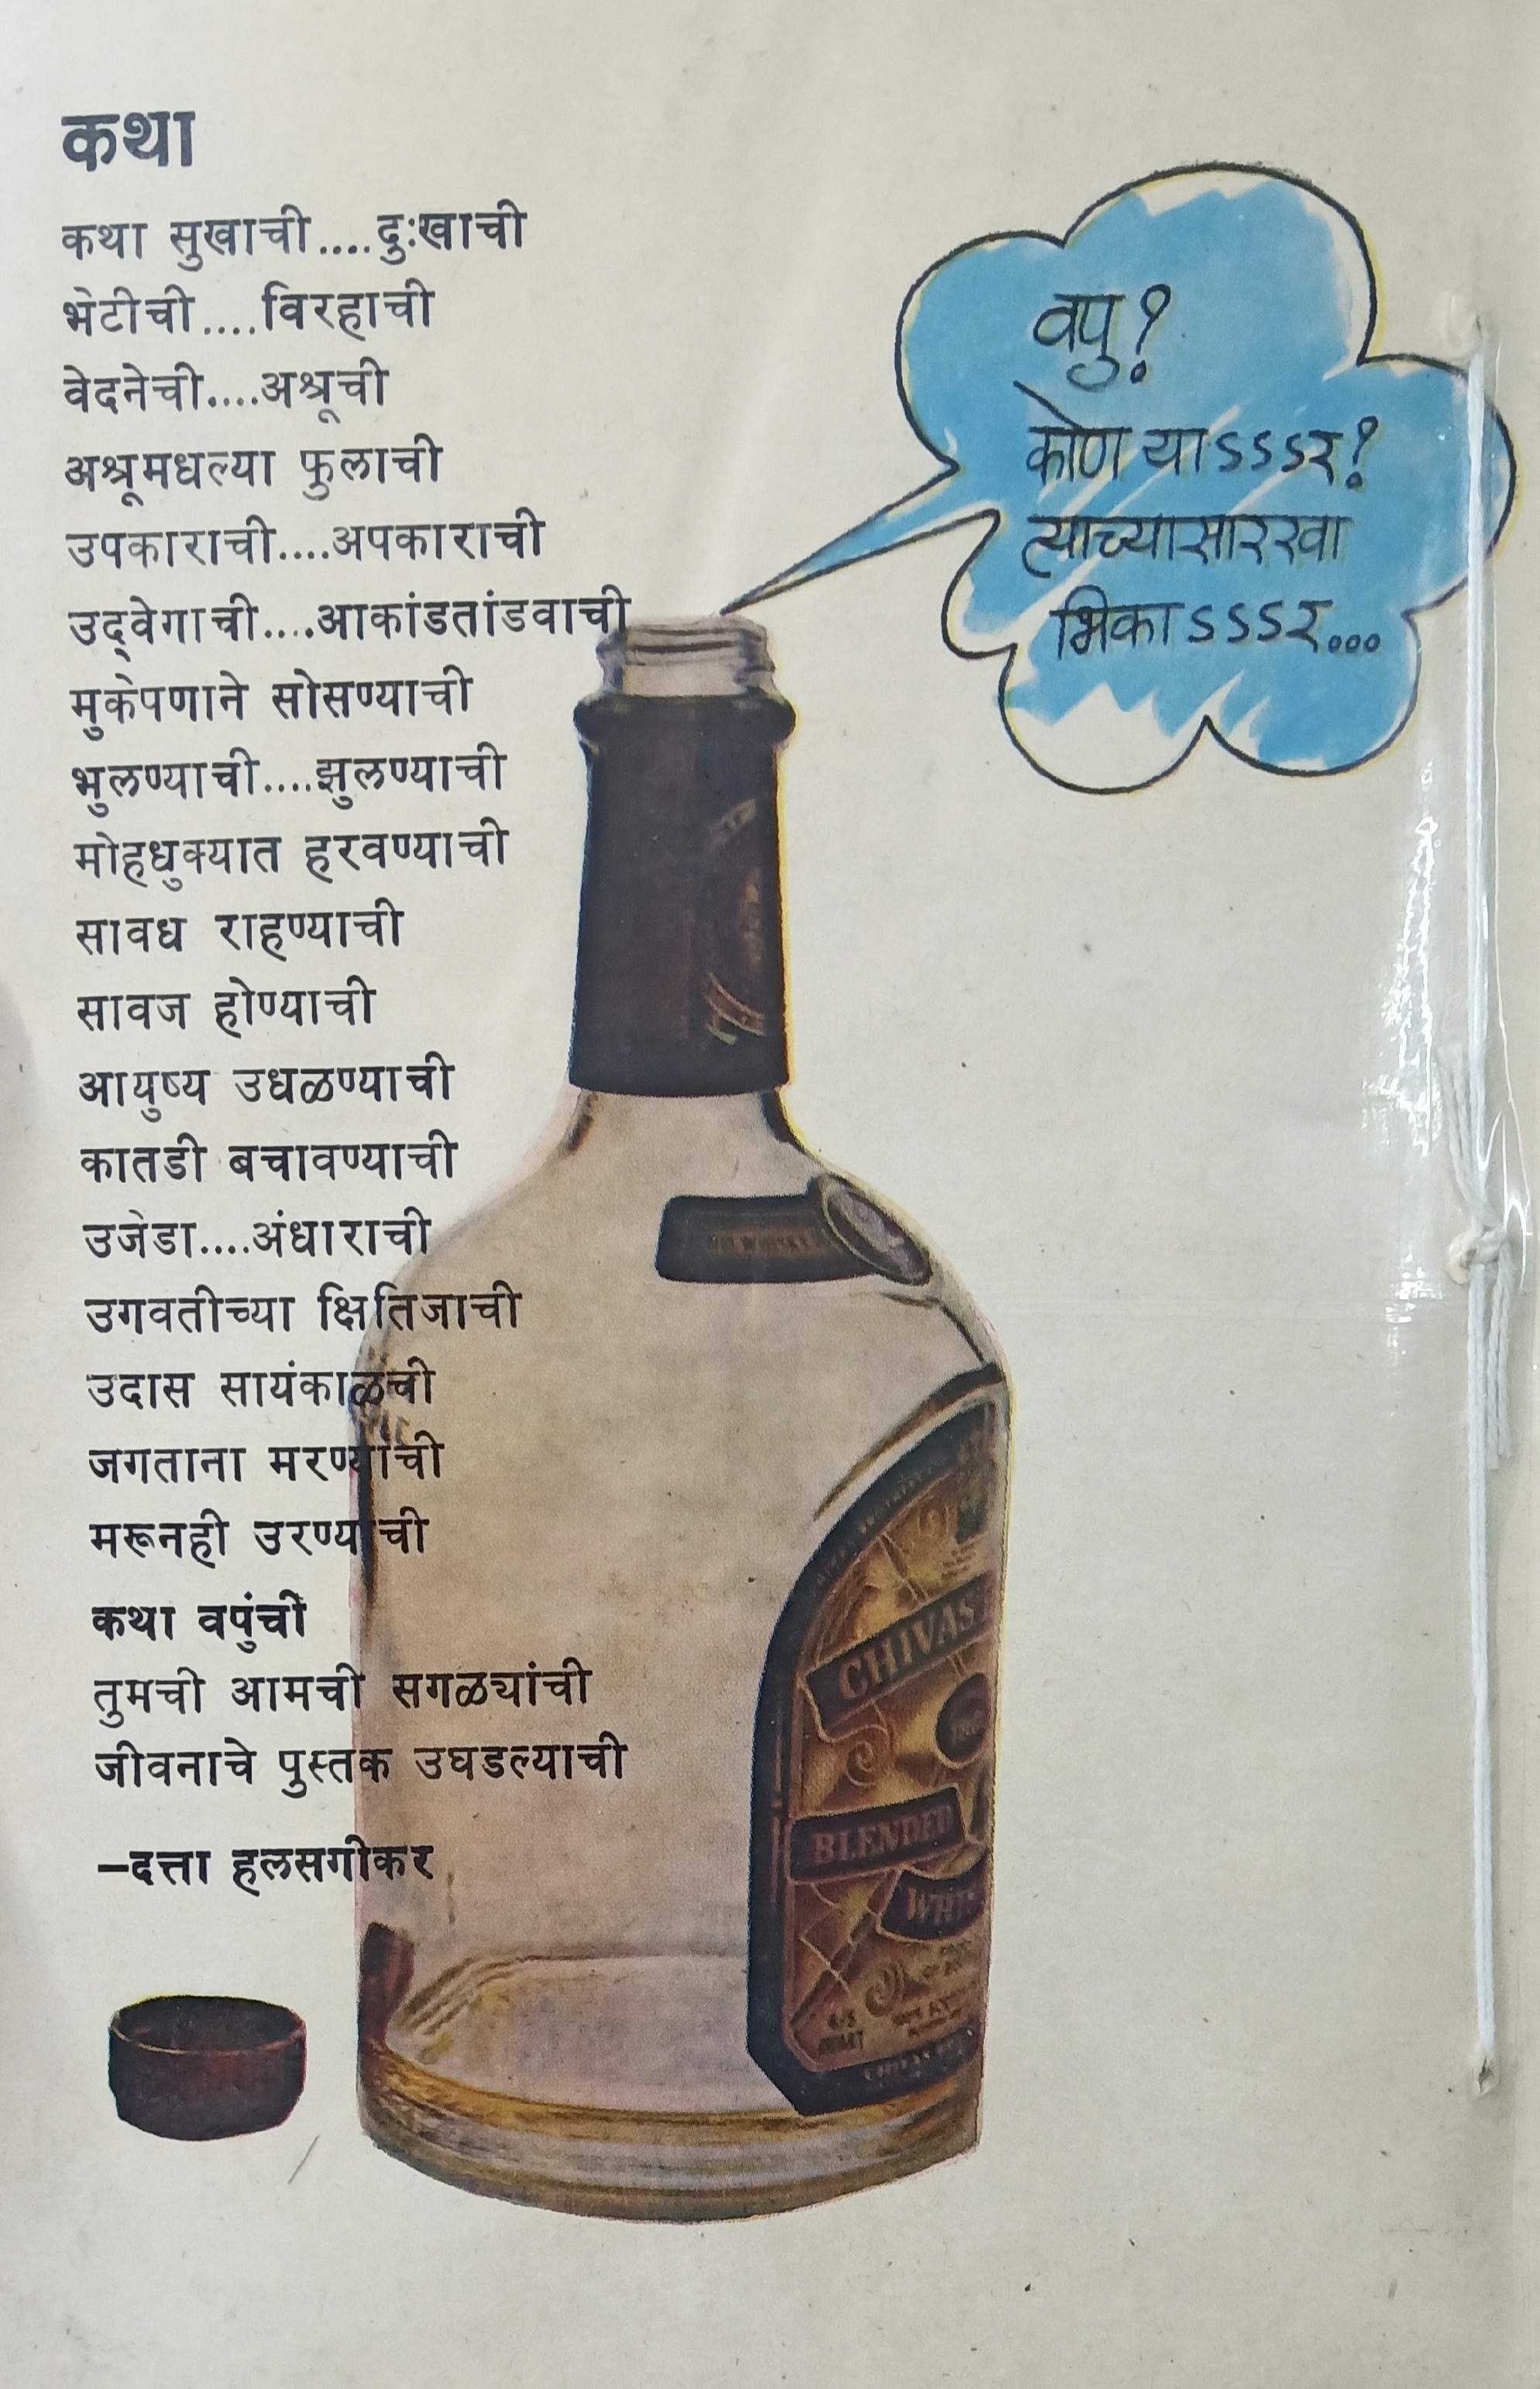 कथा
कथा सुखाची....दुःखाची
भेटीची....विरहाची
वेदनेची....अश्रूची
अश्रूमधल्या फुलाची
उपकाराची....अपकाराची
उद्‌वेगाची....आकांडतांडवाची
मुकेपणाने सोसण्याची
भुलण्याची....झुलण्याची
मोहधुक्यात हरवण्याची
सावध राहण्याची
सावज होण्याची
आयुष्य उधळण्याची
कातडी बचावण्याची
उजेडा....अंधाराची
उगवतीच्या क्षितिजाची
उदास सायंकाळची
जगताना मरण्याची
मरूनही उरण्याची
कथा वपुंची
तुमची आमची सगळ्यांची
जीवनाचे पुस्तक उघडल्याची
—दत्ता हलसगीकर
वपु?
कोण याऽऽऽर?
त्याच्यासारखा
भिकाऽऽऽर...
CHIVAS
BLENDED